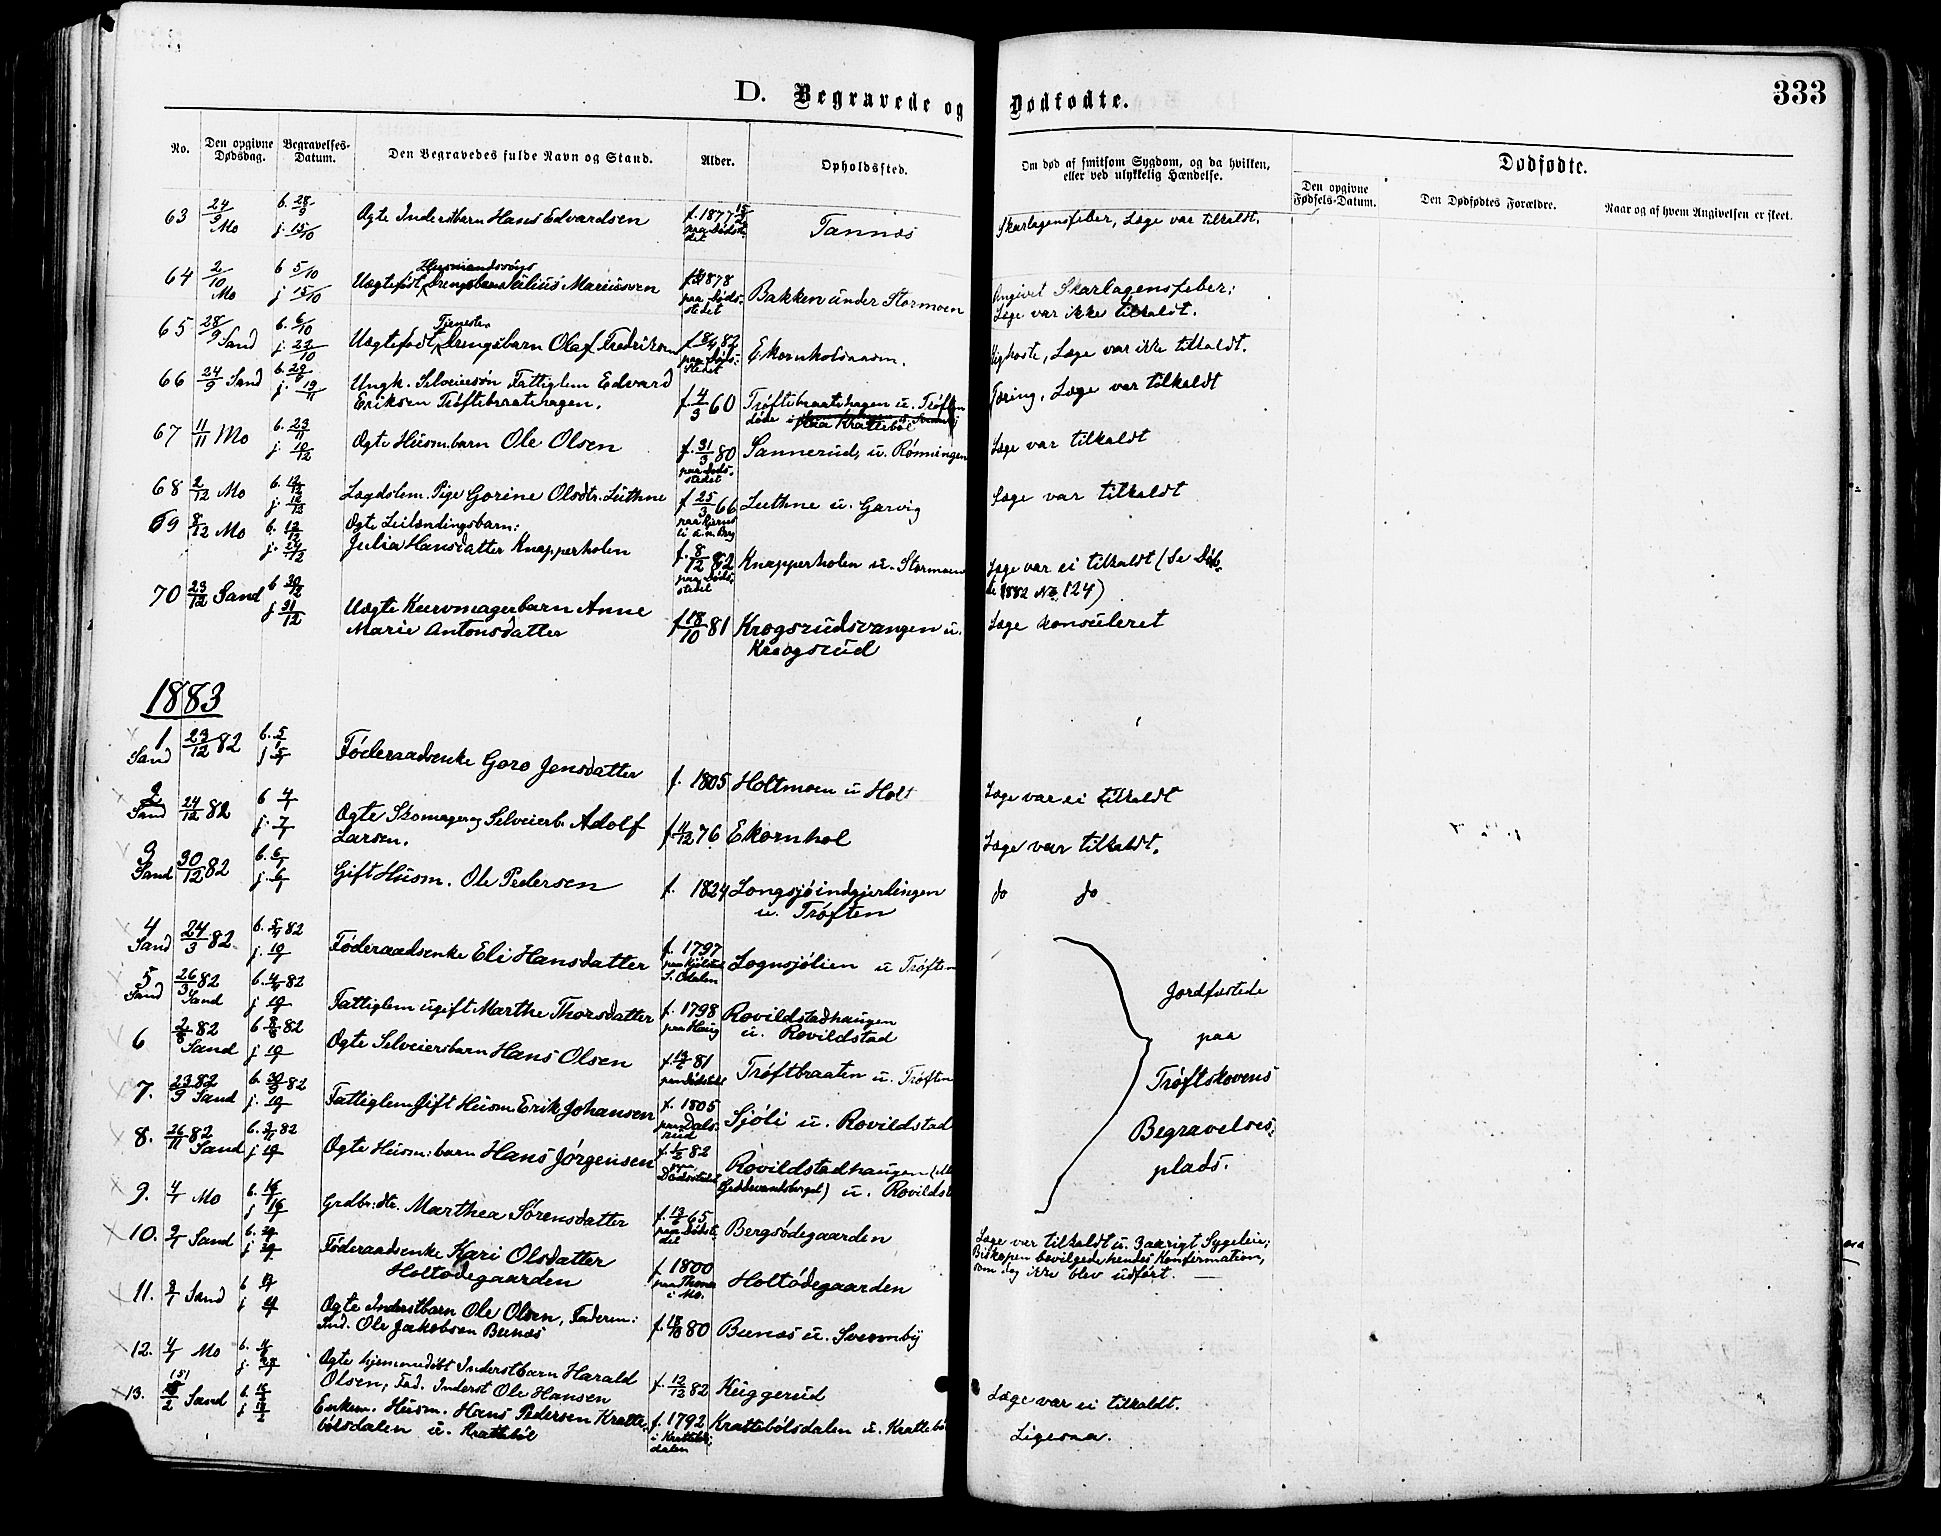 D. Begravede og Dødfødte. 333
No. Den opgivne Dødsdag. Begravelses-Datum. Den Begravedes fulde Navn og Stand. Alder. Opholdssted. Om død af smitsom Sygdom, og da hvilken, eller ved ulykkelig Hændelse. Dødfødte.
Den opgivne Fødsels-Datum. Den Dødfødtes Forældre. Naar og af hvem Angivelsen er skeet.
63 24/9 Mo b. 28/9 j. 15/10 Ægte Inderstbarn Hans Edvardsen f. 1877 15/2 paa Dødsstedet Tannæs Skarlagensfeber, Læge var tilkaldt.
64 2/10 Mo b 5/10 j 15/10 Uægtefødt Drengebarn Julius Mariussen 1878 paa Dødsstedet Bakken under Stormoen Angivet Skarlagensfeber;
Læge var ikke tilkaldt.
65 28/9 Sand b. 6/10 j. 22/10 Tjeneste
Uægtefødt Drengebarn Olaf Fredriksen 82 paa Dødsstedet Ekornholsaasen. Kighoste, Læge var ikke tilkaldt.
66 24/9 Sand b. 29/ j. 19/11 Ungk. Selveiersøn Fattiglem Edvard
Eriksen Trøftebraatehagen. f. 4/3 60 Trøftebraatehagen u. Trøften
døde i Tæring, Læge var tilkaldt
67 11/11 Mo b. 23/11 j. 10/12 Ægte Husm.barn Ole Olsen f. 31/3 80 paa Dødsstedet Sannerud, u. Rønningen Læge var tilkaldt
68 2/12 Mo b. j. Lægdslem. Pige Gorine Olsdtr. Luthne f 25/3 66 Luthne u. Garvig Læge var tilkaldt
69 8/12 Mo b. 12/12 j. 24/12 Ægte Leilændingsbarn:
Julia Hansdatter Knapperholen f. 8/12 82 paa Dødsstedet Knapperholen u. Stormoen Læge var ei tilkaldt (Se Døb-
te 1882 No 124)
70 23/12 Sand b 30/12 j. 31/12 Uægte Kurvmagerbarn Anne
Marie Antonsdatter f 18/10 81 Krogsrudsvangen u.
Kraagsrud Læge konsuleret
1883
1 Sand 23/12 82 b. 5/1 j 5/1 Føderaadsenke Goro Jensdatter f. 1805 Holtmoen u Holt Læge var ei tilkaldt
2 Sand 24/12 82 b 4/1 j. 7/1 Ægte Skomager og Selveierb. Adolf
Larsen. f 4/12 76 Ekornhol Læge var tilkaldt.
3 Sand 30/12 82 b. 6/1 j. 6/1 Gift Husm. Ole Pedersen f. 1824 Longsjøindgjerdingen
u. Trøften do do
4 Sand 24/3 82 b. 82 j. 10/1 Føderaadsenke Eli Hansdatter f. 1797 S. Odalen Lognsjølien u Trøften
5 Sand 26/3 82 Sand b. 4/4 82 j 10/1 Fattiglem ugift Marthe Thorsdatter f. 1798 paa Haug Rovildstadhaugen
u. Rovildstad
6 2/8 82 Sand b 8/8 82 j 10/1 Ægte Selveiersbarn Hans Olsen f. 81 paa Dødsstedet Trøftbraaten u. Trøften
7. 23/9 82 Sand b. 30/9 82 j. 10/1 Fattiglem Gift Husm. Erik Johansen f. 1805 paa Dalsrud Sjøli u. Rovildstad
8. 26/11 82 Sand b. 82 j 10/1 Ægte Husm: barn Hans Jørgensen f. 82 Dødsstedet Rovildstadhaugen
u. Rovildst
Jordfæstede
paa
Trøftskovens
Begravelses-
plads.
9. 4/1 Mo b. 16/1 j 16/1 Grdbr:dtr. Marthea Sørensdatter f. 13/6 65 paa Dødsstedet Bergsødegaarden Læge var tilkaldt u. 3 aarigt Sygeleie;
Biskopen bevilgede hendes Konfirmation,
som dog ikke blev udført.
10. Sand b. j. Føderaadsenke Kari Olsdatter
Holtødegaarden f. 1800 i Mo. Holtødegaarden
11. Sand b j Ægte Inderstbarn Ole Olsen, Faderen:
Ind. Ole Jakobsen Bunæs f. 80 Bunæs u. Svennby
12. Mo b. j. Ægte hjemmedøbt Inderstbarn Harald
Olsen; Fad. Inderst Ole Hansen f. 12/12 82 Kuggerud Læge var ei tilkaldt.
13. Sand b. j. Enkem. Husm. Hans Pedersen Kratte-
bølsdalen u. Krattebøl f. 1792 i Krattebøls-
dalen Krattebølsdalen u. Krattebøl Ligesaa.